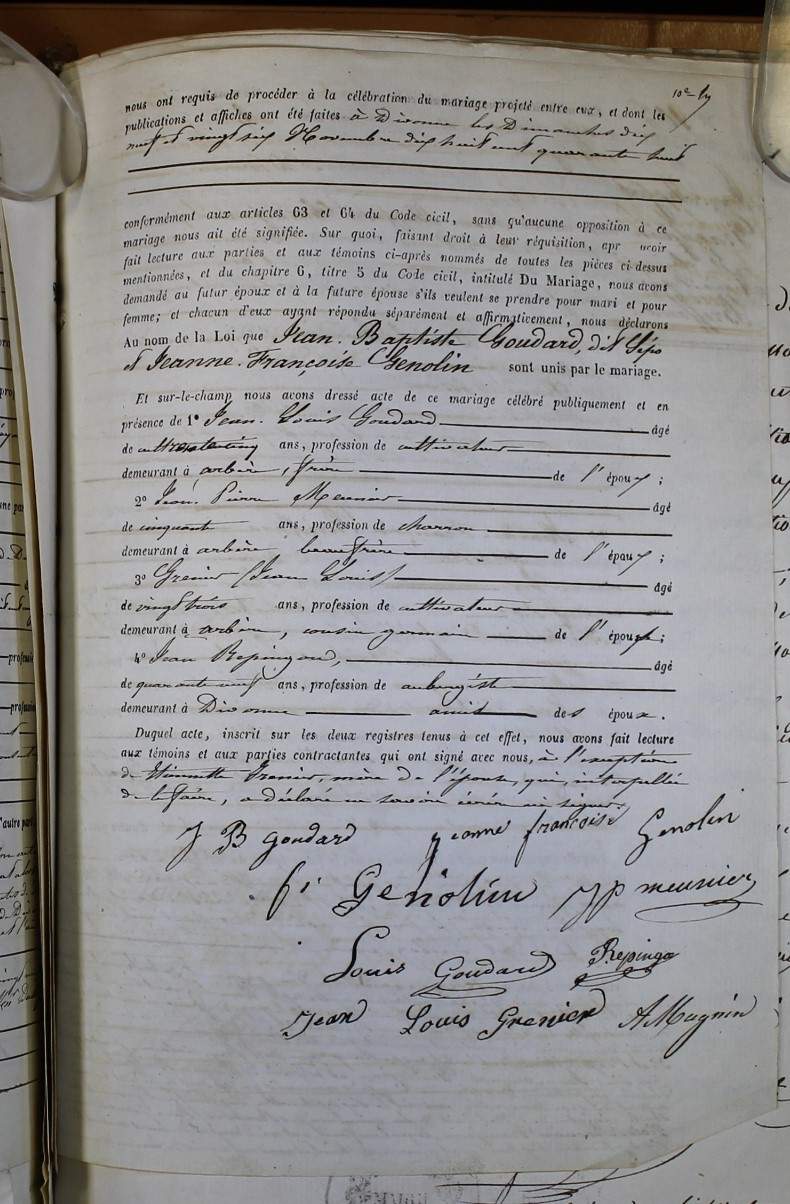 10e
nous ont requis de procéder à la célébration du mariage projeté entre eux, et dont les
publications et affiches ont été faites à Divonne les Dimanches dix
neuf et vingt six Novembre dix huit cent quarante huit
conformément aux articles 63 et 64 du Code civil, sans qu'aucune opposition à ce
mariage nous ait été signifiée. Sur quoi, faisant droit à leur réquisition, apr avoir
fait lecture aux parties et aux témoins ci-après nommés de toutes les pièces ci-dessus
mentionnées, et du chapitre 6, titre 5 du Code civil, intitulé Du Mariage, nous avons
demandé au futur époux et à la future épouse s'ils veulent se prendre pour mari et pour
femme; et chacun d'eux ayant répondu séparément et affirmativement, nous déclarons
Au nom de la Loi que Jean. Baptiste Goudard, dit Sépo
et Jeanne. Françoise Genolin sont unis par le mariage.
Et sur-le-champ nous avons dressé acte de ce mariage célébré publiquement et en
présence de 1° Jean. Louis Goudard âgé
de ans, profession de cultivateur
demeurant à arbère, frère de l'époux;
2° Jean. Pierre Meunier âgé
de cinquante ans, profession de charron
demeurant à arbère, beau frère de l'époux;
3° Grenier (Jean Louis) âgé
de vingt trois ans, profession de cultivateur
demeurant à arbère, cousin germain de l'épouse;
4° Jean Repingond, âgé
de quarante neuf ans, profession de aubergiste
demeurant à Divonne amis des époux.
Duquel acte, inscrit sur les deux registres tenus à cet effet, nous avons fait lecture
aux témoins et aux parties contractantes qui ont signé avec nous, à l'exception
de Etiennette Grenier, mère de l'épouse, qui, interpellée
de le faire, a déclaré ne savoir écrire ni signer.
J B goudard jeanne françoise Genolin
fs Genolin JP meunier
Louis Goudard Repingo
Jean Louis Grenier AMugnin